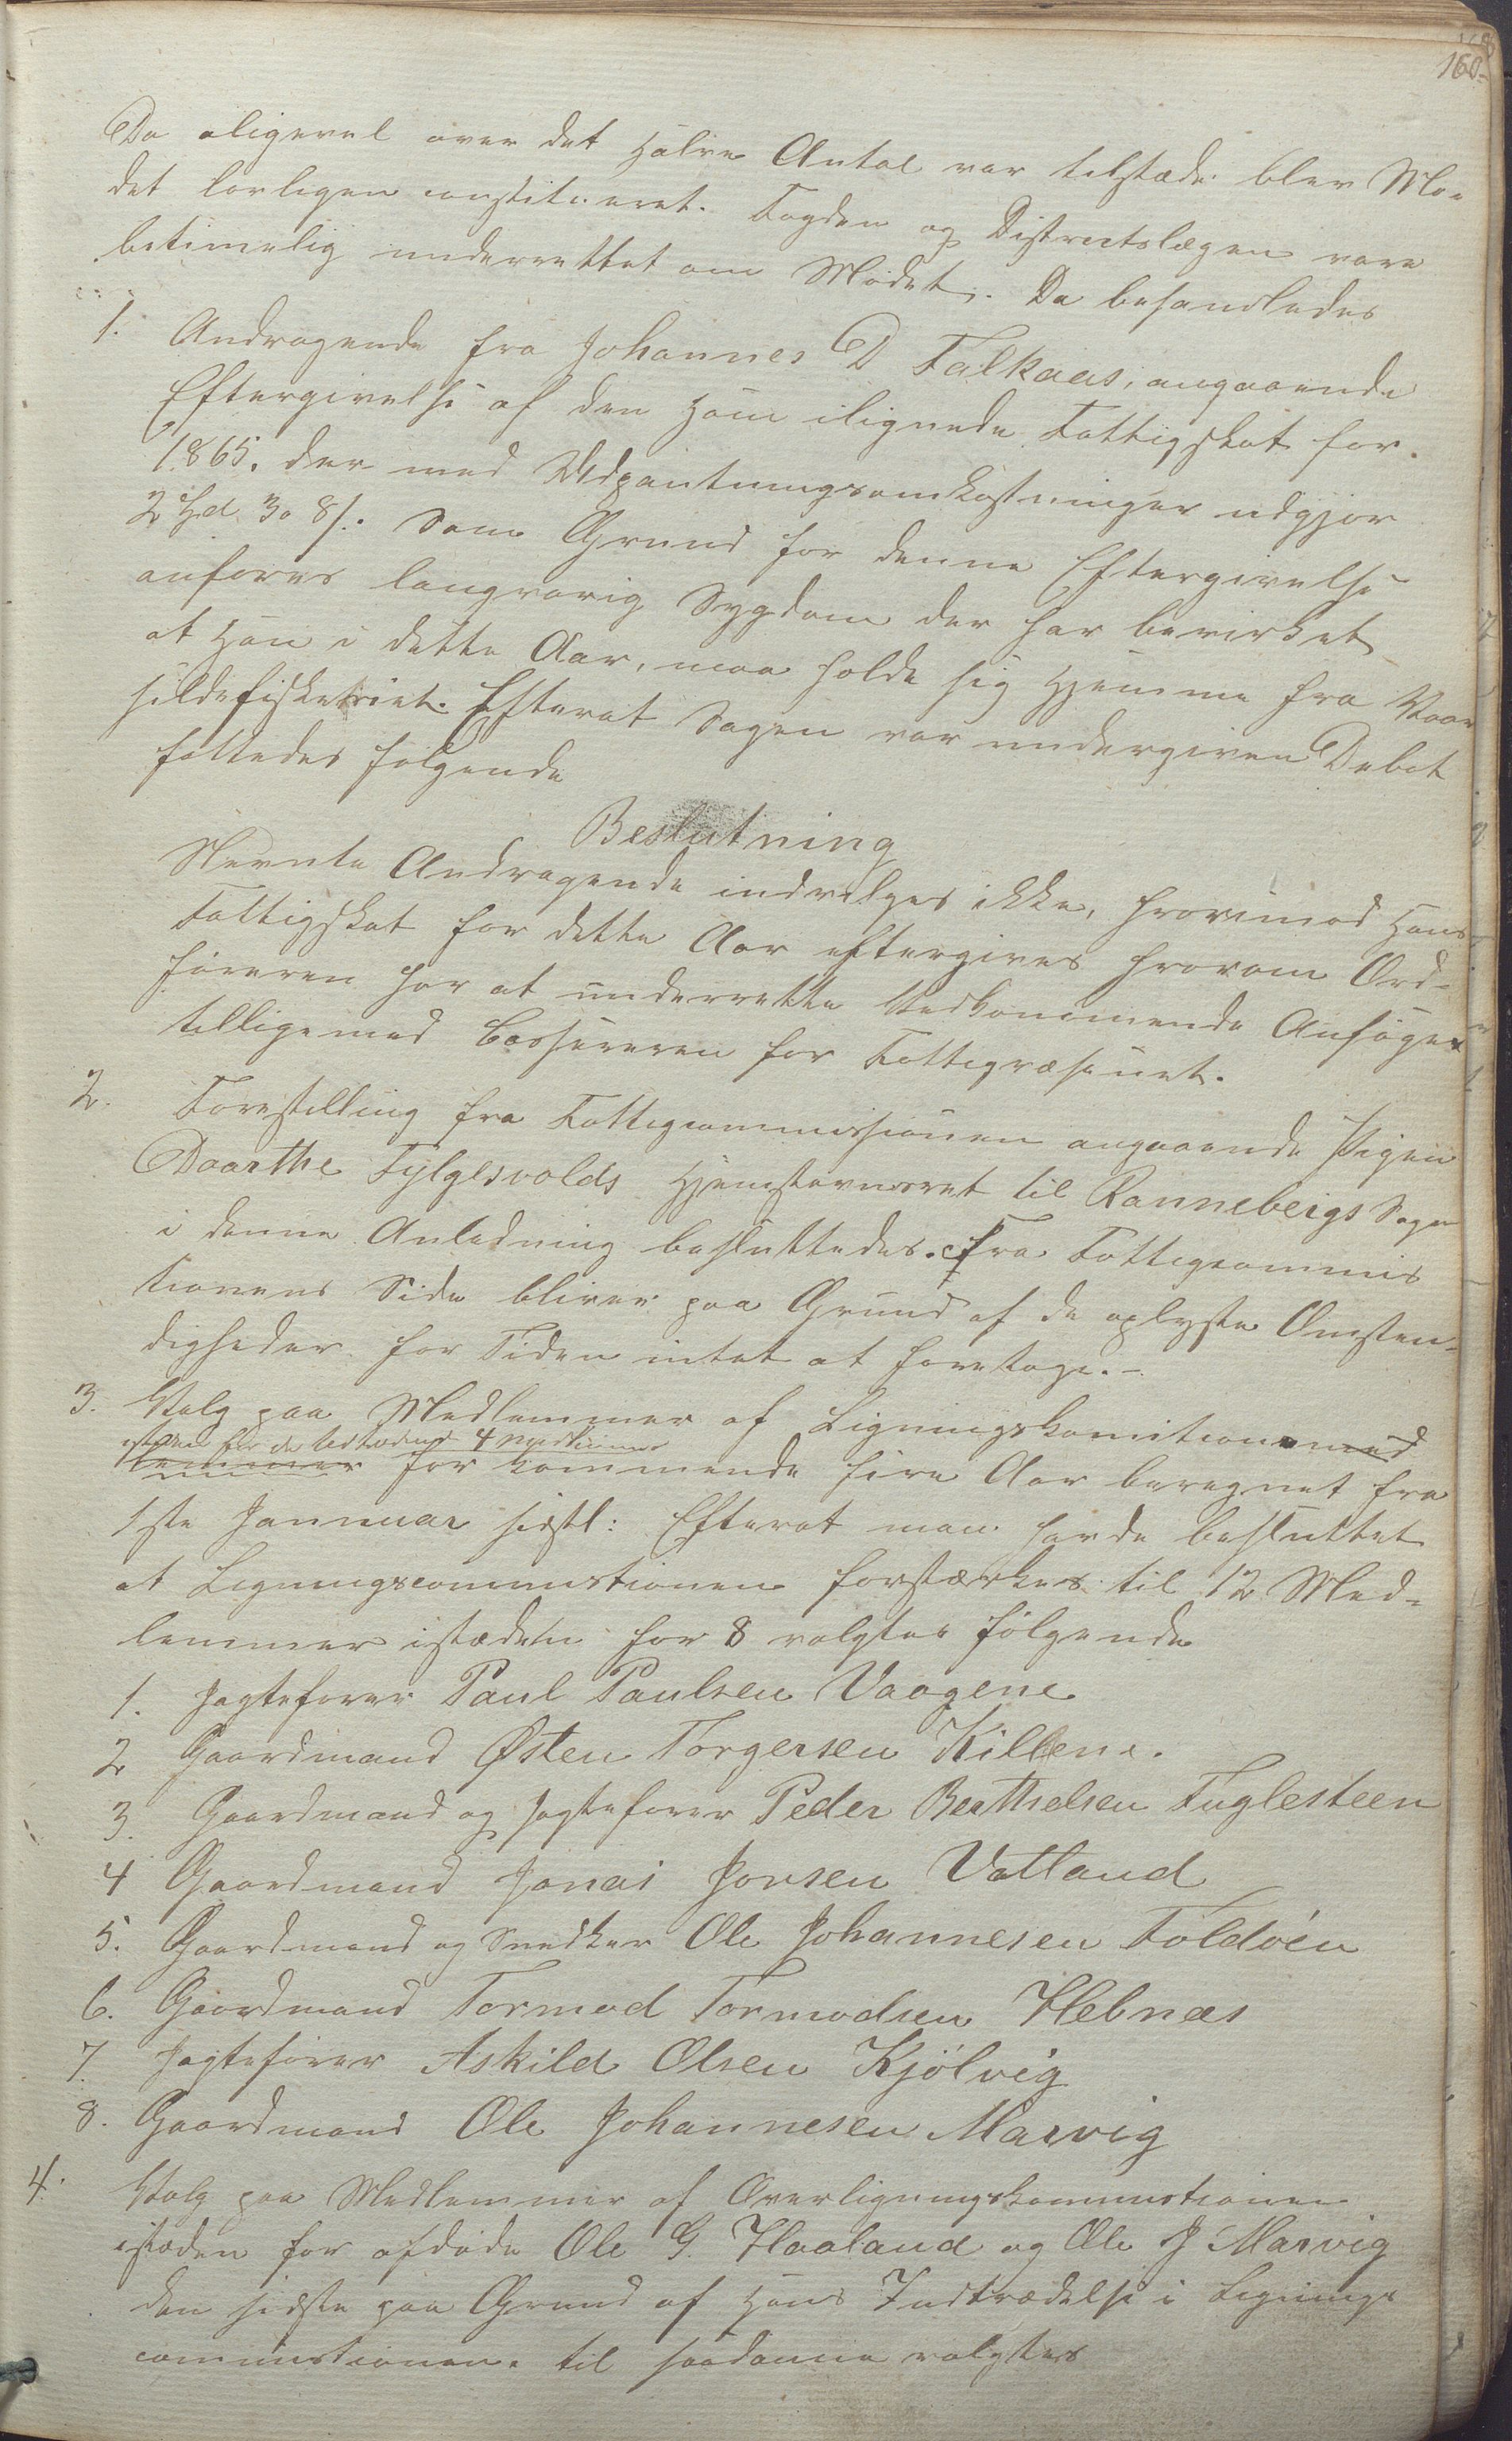 160.
Da aligevel over det Halve Antal var tilstæde blev Mø-
det lovligen constitueret. Fogden og Districtslægen vare
betimelig underrettet om Mødet. Da behandledes
1. Andragende fra Johannes D Falkaas, angaaende
Eftergivelse af den Ham ilignede Fattigskat for
1865. der med Udpantningsomkostninger udgjør
2 Spd 3 o 8 s. Som Grund for denne Eftergivelse
anføres langvarig Sygdom der har bevirket
at Han i dette Aar, maa holde sig Hjemme fra Vaar
sildefiskeriet. Efterat Sagen var undergiven Debat
fattedes følgende
Beslutning
Nevnte Andragende indvilges ikke, hvorimod Hans
Fattigskat for dette Aar eftergives hvorom Ord-
føreren har at underrette Vedkommende Ansøger
tilligemed Cassereren for Fattigvæsenet.
2. Forestilling fra Fattigcommissionen angaaende Pigen
Daarthe Fylgesvolds Hjemstavnsret til Rennebergs Sogn
i denne Anledning besluttedes. Fra Fattigcommis
sionens Side bliver paa Grund af de oplyste Omsten-
digheder for Tiden intet at foretage.-
3. Valg paa Medlemmer af Ligningskomitionen med
istæden for de udtrædende 4 Medlemmer
lemmer for kommende fire Aar beregnet fra
1ste Jannuar sidstl: Efterat man havde besluttet
at Ligningscommistionen forstærkes til 12 Med-
lemmer istæden for 8 valgtes følgende
1. Jagtefører Paul Paulsen Vaagene
2 Gaardmand Østen Torgersen Killene.
3. Gaardmand og Jagtefører Peder Berthelsen Fuglesteen
4 Gaardmand Jonas Jonsen Vatland
5. Gaardmand og Snedker Ole Johannesen Foldøen
6. Gaardmand Tormod Tormodsen Hebnæs
7. Jagtefører Askild Olsen Kjølvig
8. Gaardmand Ole Johannesen Marvig
4. Valg paa Medlemmer af Overligningskommistionen
istæden for afdøde Ole G. Haaland og Ole J Marvig
den sidste paa Grund af Hans Indtrædelse i Lignings
commistionen. til saadanne valgtes